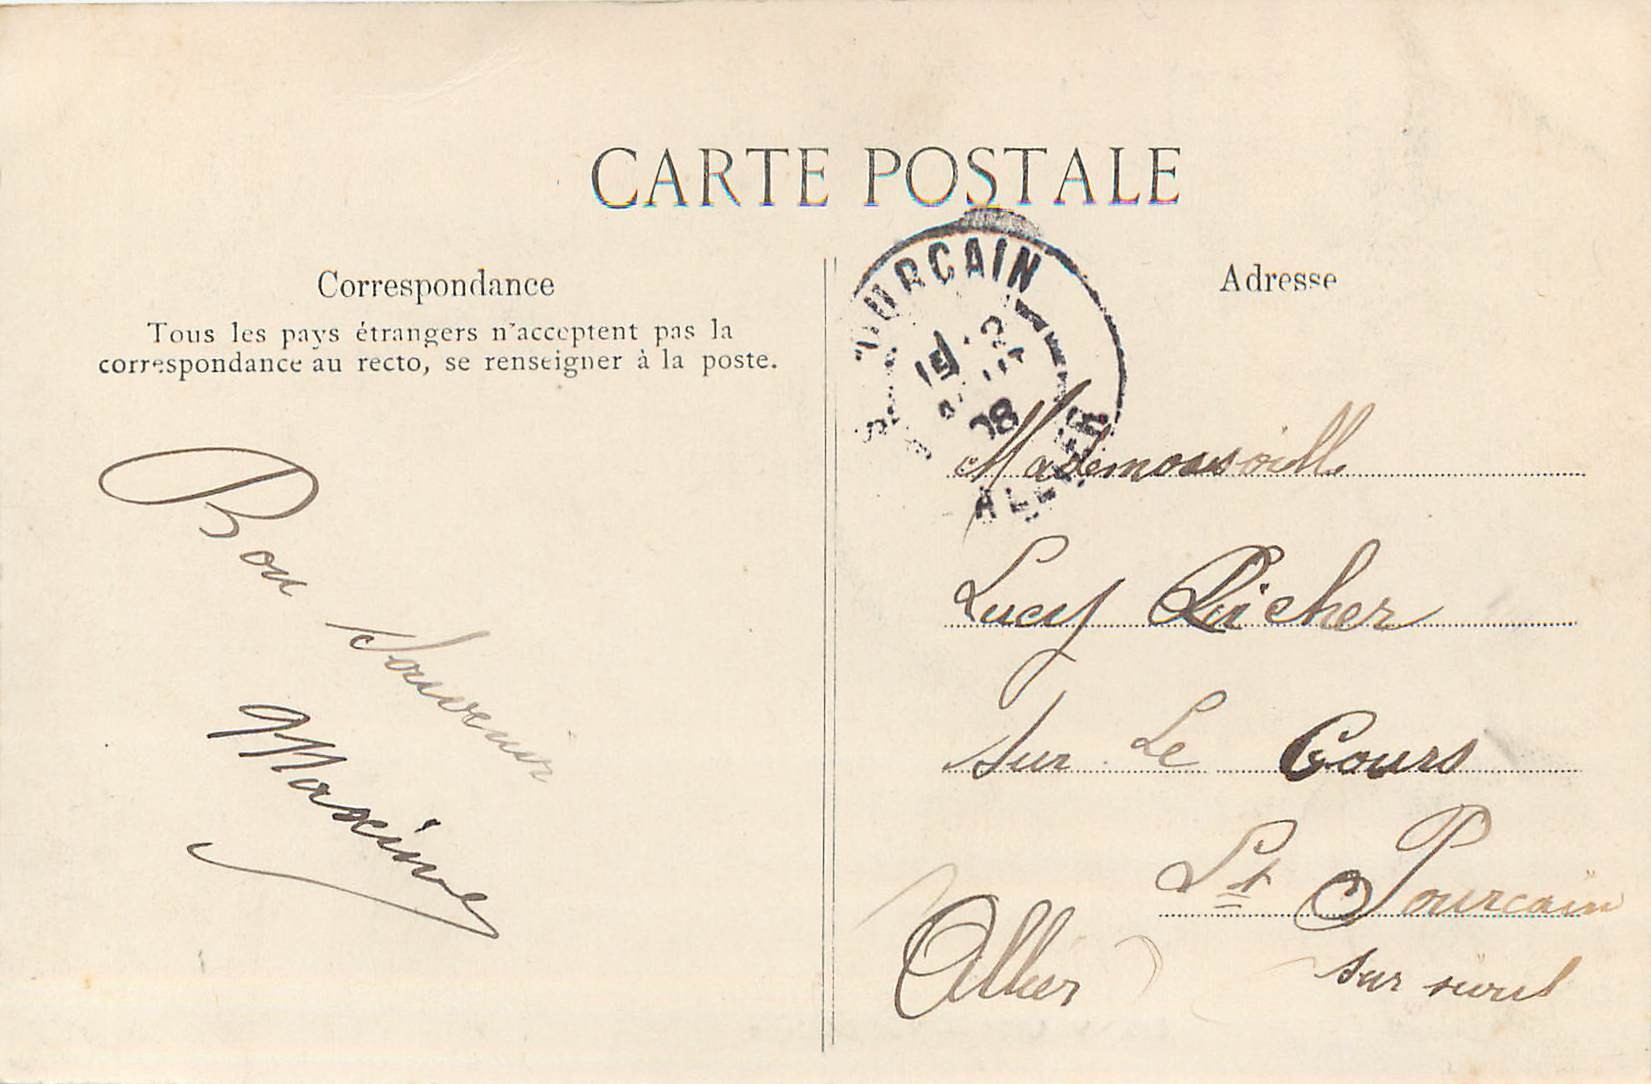 CARTE POSTALE
Correspondance
Tous les pays étrangers n'acceptent pas la
correspondance au recto, se renseigner à la poste.
Bon Souvenir
Maxime
Adresse
OURCAIN
08
ALLIER
Mademoiselle
Lucy Richer
sur Le Cours
St Pourcain
sur
Allier